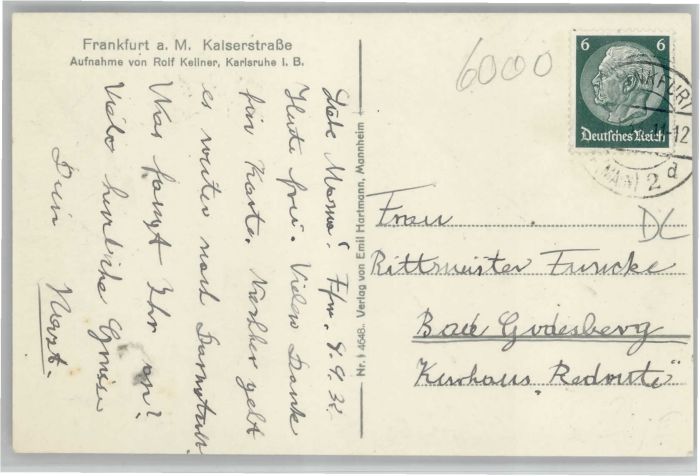 Frankfurt a. M. Kaiserstraße
Aufnahme von Rolf Kellner, Karlsruhe i. B.
6000
6 6
Deutsches Reich
FRANKFURT
11-12
(MAIN) 2 d
Liebe Mama! Ffm.
Heute frei. Vielen Dank
für Karte. Nachher geht
es weiter nach Darmstadt.
Was fangt Ihr an?
Viele herzliche Grüsse
Dein
Nr. 4648. Verlag von Emil Hartmann, Mannheim
Frau
DL
Rittmeister Funcke
Bad Godesberg
Kurhaus „Redoute"